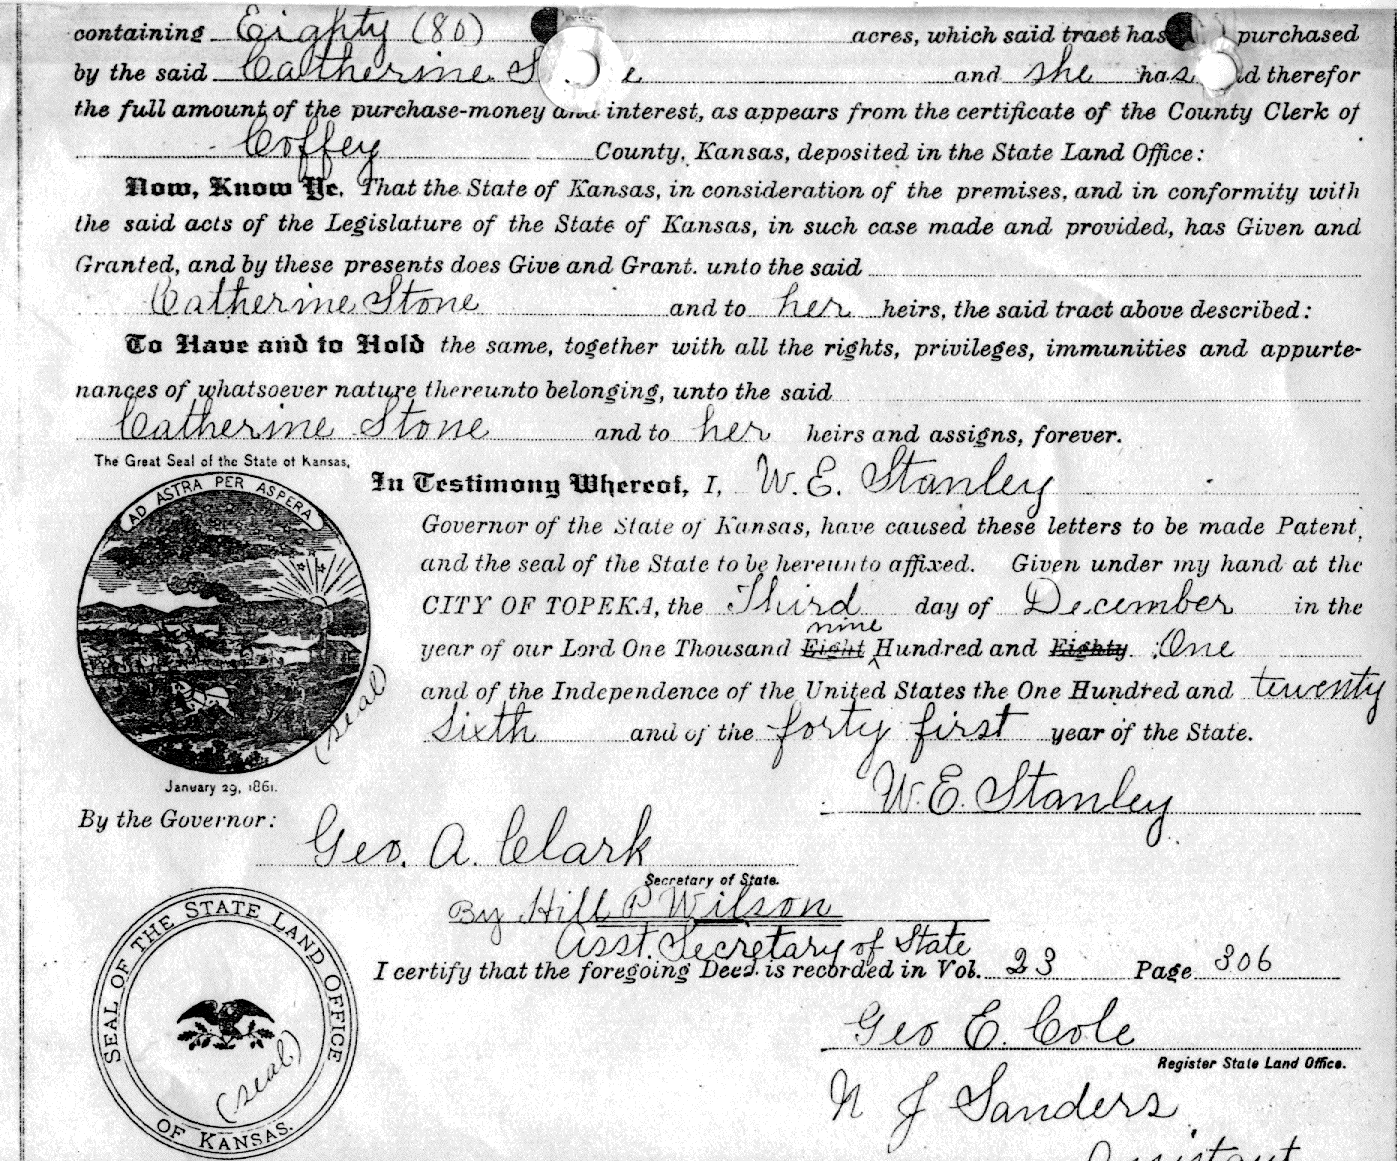 containing Eighty (80) acres, which said tract has purchased
by the said Catherine S e and she has d therefor
the full amount of the purchase-money and interest, as appears from the certificate of the County Clerk of
Coffey County, Kansas, deposited in the State Land Office:
Now, Know Ye, That the State of Kansas, in consideration of the premises, and in conformity with
the said acts of the Legislature of the State of Kansas, in such case made and provided, has Given and
Granted, and by these presents does Give and Grant. unto the said
Catherine Stone and to her heirs, the said tract above described:
To Have and to Hold the same, together with all the rights, privileges, immunities and appurte-
nances of whatsoever nature thereunto belonging, unto the said
Catherine Stone and to her heirs and assigns, forever.
The Great Seal of the State of Kansas,
AD ASTRA PER ASPERA
(seal)
January 29, 1861.
In Testimony Whereof, I, W. E. Stanley
Governor of the State of Kansas, have caused these letters to be made Patent,
and the seal of the State to be hereunto affixed. Given under my hand at the
CITY OF TOPEKA, the Third day of December in the
nine
year of our Lord One Thousand Eight Hundred and Eighty. One
and of the Independence of the United States the One Hundred and twenty
Sixth and of the forty first year of the State.
W. E. Stanley
By the Governor:
Geo. A. Clark
Secretary of State.
By Hill P Wilson
Asst. Secretary of State
I certify that the foregoing Deed is recorded in Vol. 23 Page 306
Geo E. Cole
Register State Land Office.
N J Sanders
Assistant
SEAL OF THE STATE LAND OFFICE
OF KANSAS.
(seal)